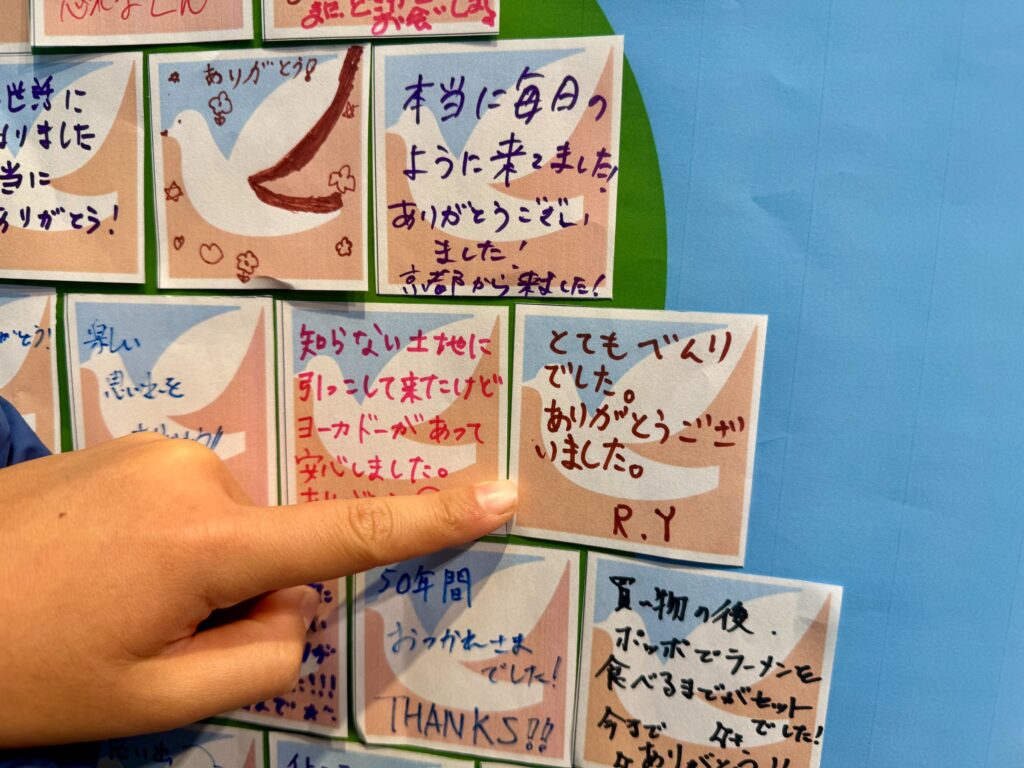 忘れません
また、どこかで
お会いしましょう
世話に
なりました
当に
ありがとう!
ありがとう!
本当に毎日の
ように来てました!
ありがとうござい
ました!
京都から来ました!
がとう!
楽しい
思い出を
ありがとう!!
知らない土地に
引っこして来たけど
ヨーカドーがあって
安心しました。
とてもべんり
でした。
ありがとうござ
いました。
R.Y
50年間
おつかれさま
でした!
THANKS!!
買い物の後、
ポッポでラーメンを
食べるまでがセット
でした!
今まで
ありがとう!!
思い出